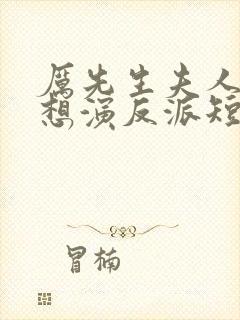 厲先生夫人
想演反派短
冒楠